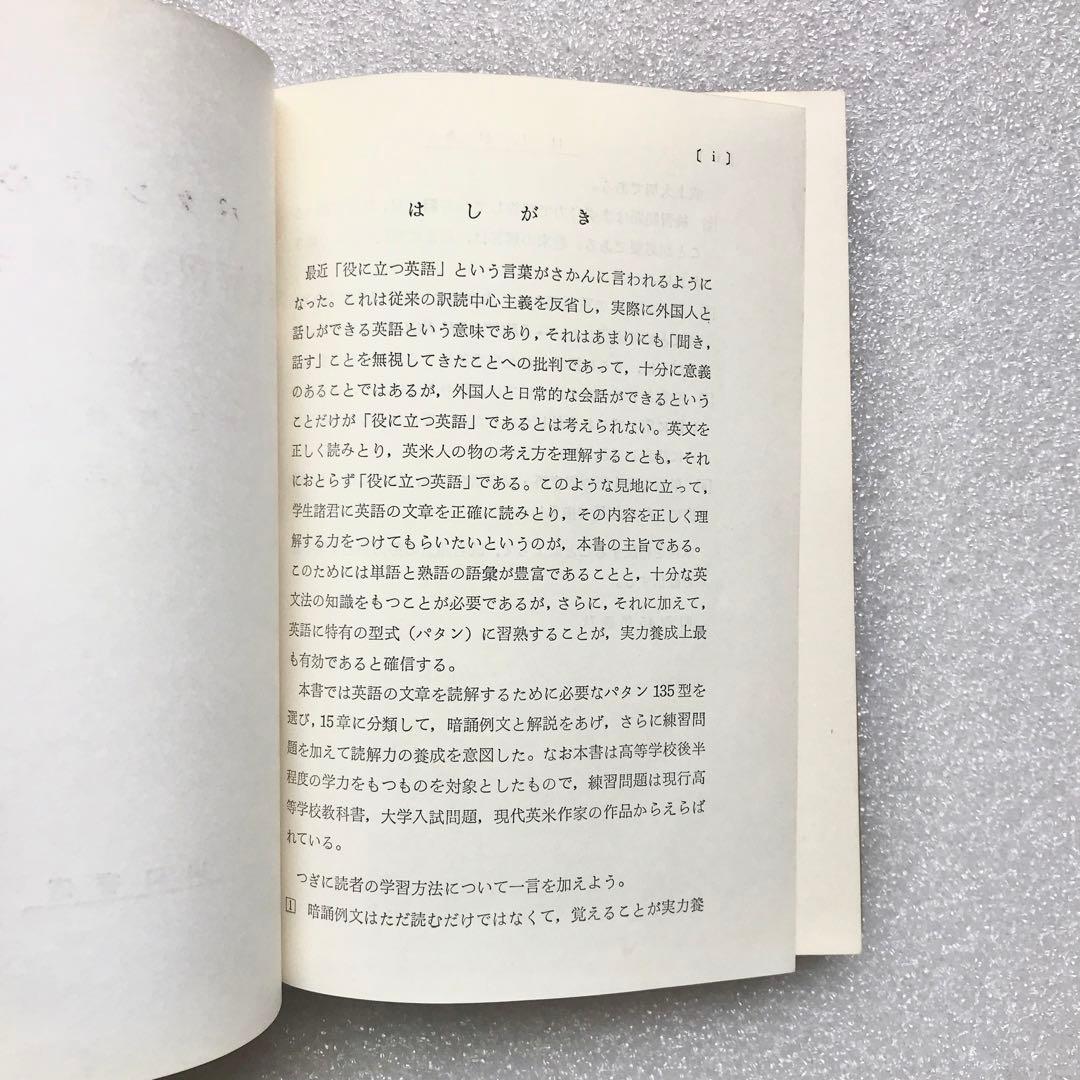 〔 i 〕
はしがき
最近「役に立つ英語」という言葉がさかんに言われるように
なった。これは従来の訳読中心主義を反省し，実際に外国人と
話しができる英語という意味であり，それはあまりにも「聞き，
話す」ことを無視してきたことへの批判であって，十分に意義
のあることではあるが，外国人と日常的な会話ができるという
ことだけが「役に立つ英語」であるとは考えられない。英文を
正しく読みとり，英米人の物の考え方を理解することも，それ
におとらず「役に立つ英語」である。このような見地に立って，
学生諸君に英語の文章を正確に読みとり，その内容を正しく理
解する力をつけてもらいたいというのが，本書の主旨である。
このためには単語と熟語の語彙が豊富であることと，十分な英
文法の知識をもつことが必要であるが，さらに，それに加えて，
英語に特有の型式（パタン）に習熟することが，実力養成上最
も有効であると確信する。
本書では英語の文章を読解するために必要なパタン 135型を
選び，15章に分類して，暗誦例文と解説をあげ，さらに練習問
題を加えて読解力の養成を意図した。なお本書は高等学校後半
程度の学力をもつものを対象としたもので，練習問題は現行高
等学校教科書，大学入試問題，現代英米作家の作品からえらば
れている。
つぎに読者の学習方法について一言を加えよう。
1 暗誦例文はただ読むだけではなくて，覚えることが実力養